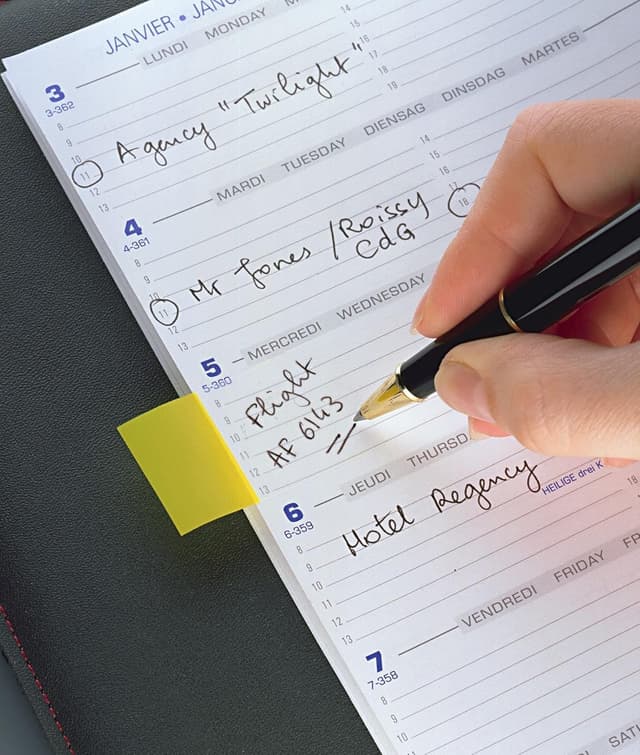 JANVIER • JANU
LUNDI MONDAY M
3
3-362
8
9
10
11
12
13
14
15
16
17
18
19
Agency "Twilight"
MARDI TUESDAY DIENSAG DINSDAG MARTES
4
4-361
8
9
10
11
12
13
14
15
16
17
18
Mr Jones / Roissy
CdG
MERCREDI WEDNESDAY
5
5-360
8
9
10
11
12
13
Flight
AF 6143
JEUDI THURSD
HEILIGE drei K
6
6-359
8
9
10
11
12
13
18
Hotel Regency
VENDREDI FRIDAY FR
7
7-358
8
9
10
11
SAT